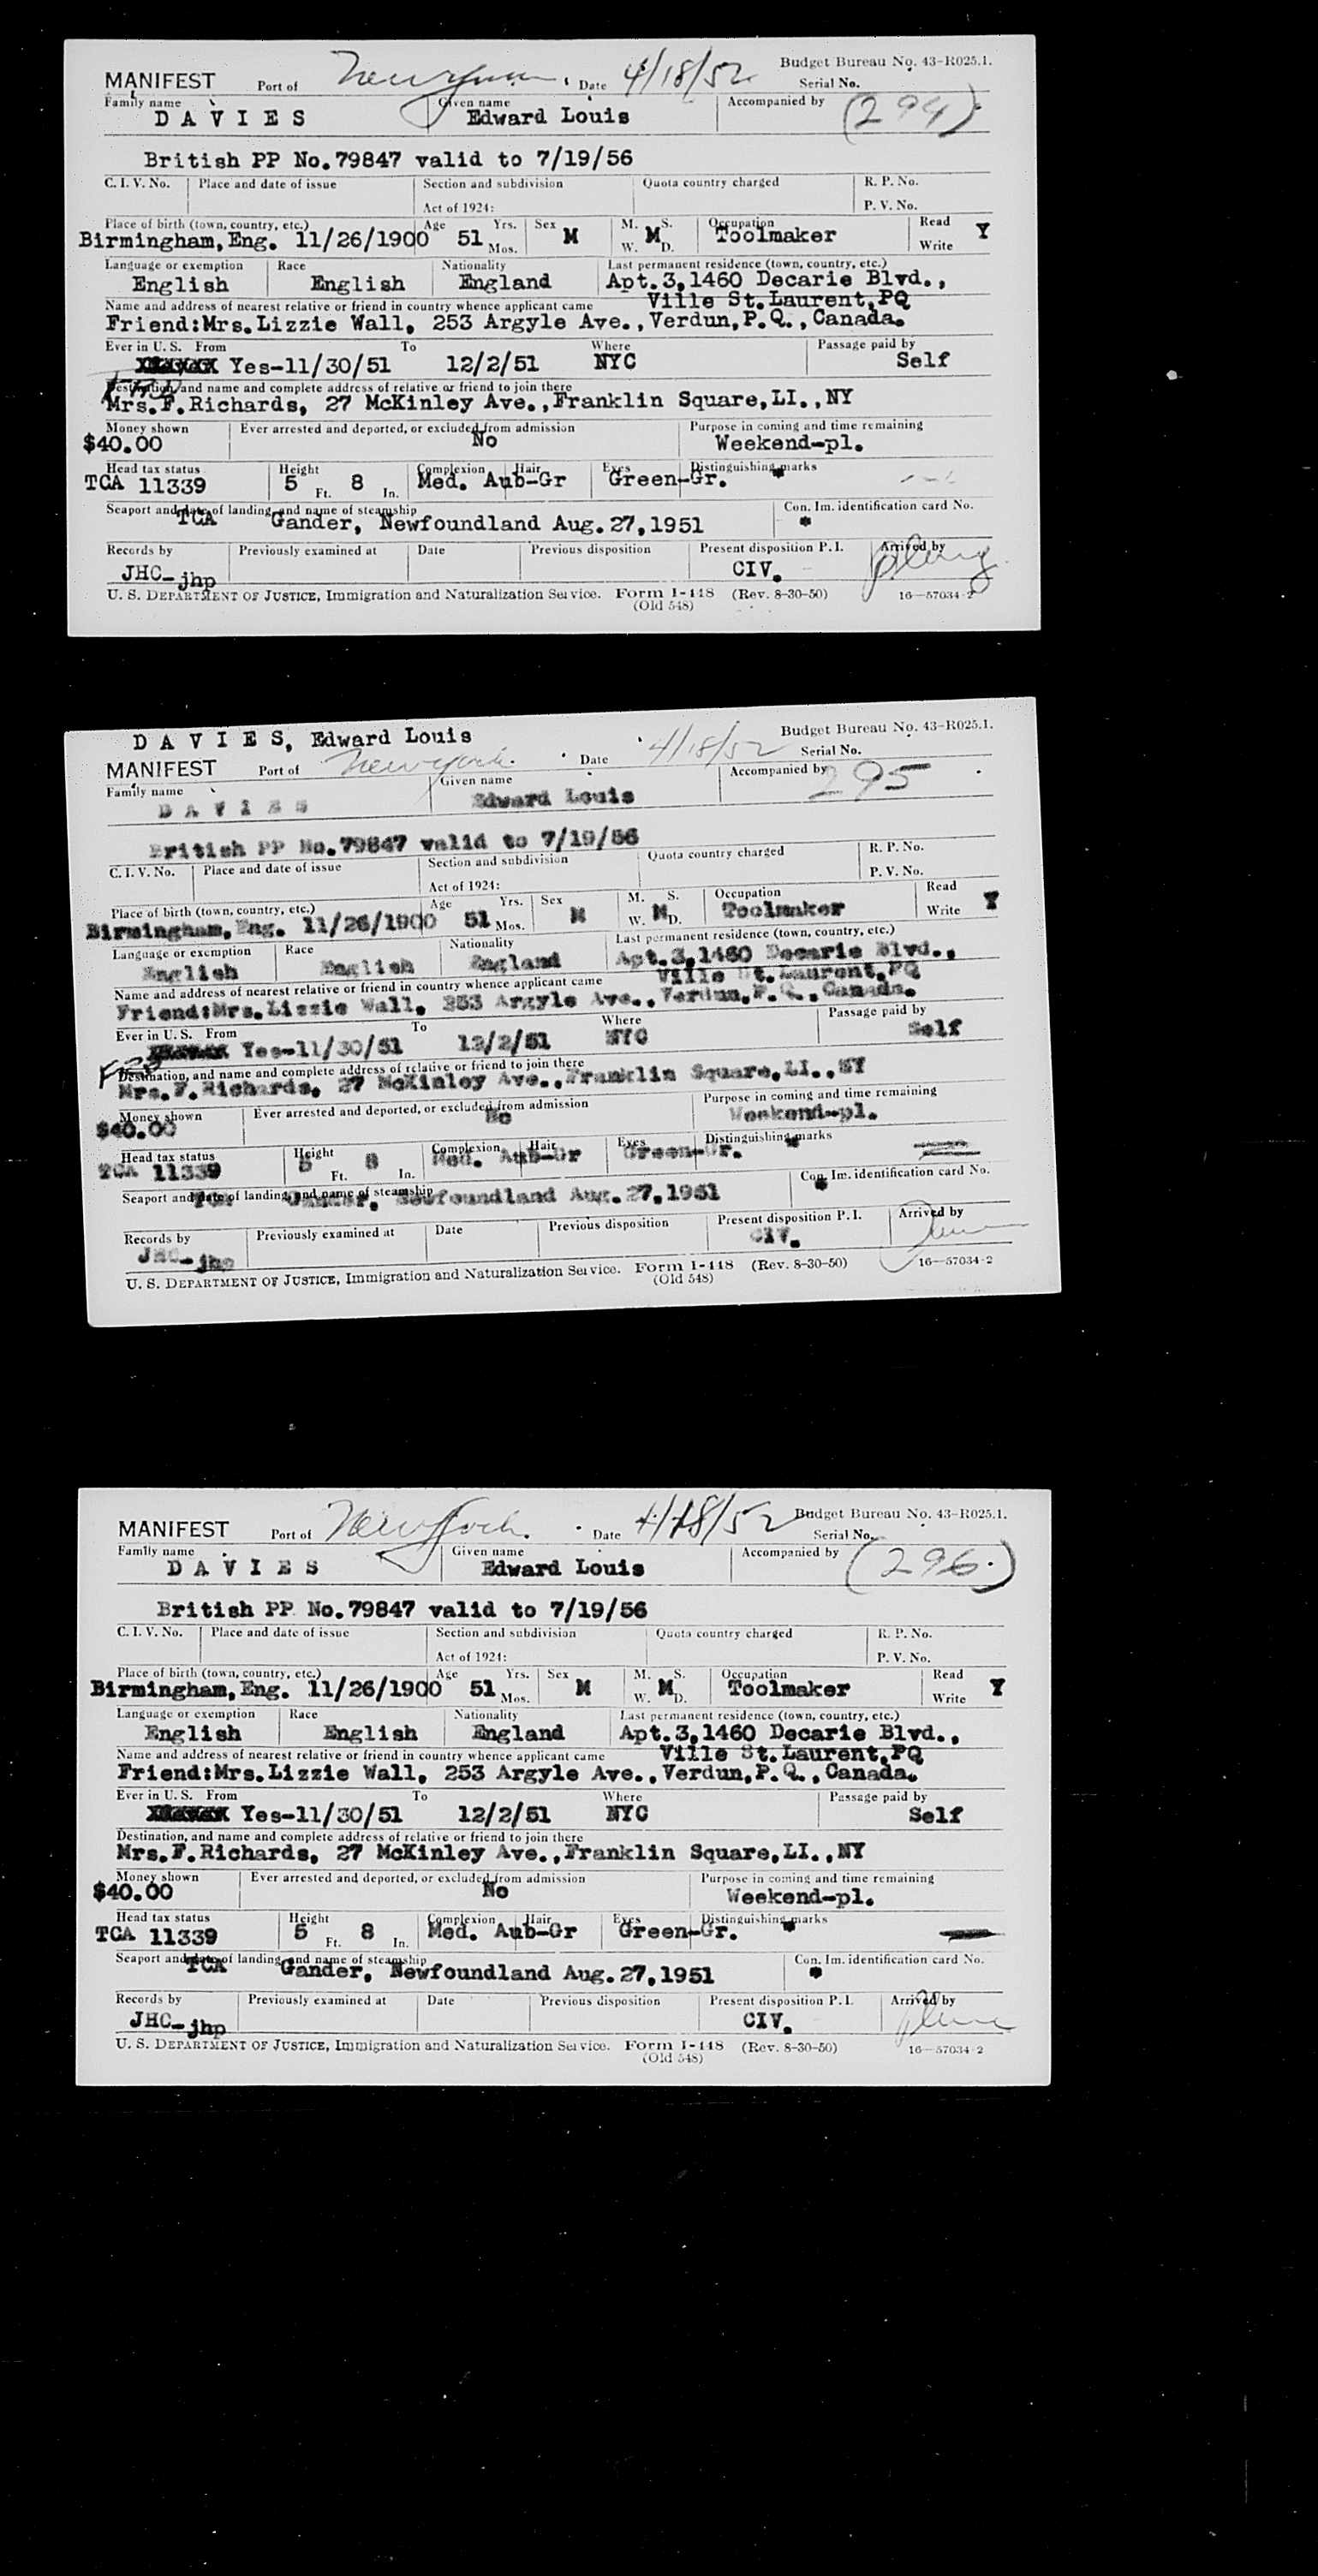 Budget Bureau No. 43-R025.1.
MANIFEST Port of New York Date 4/18/52 Serial No.
Family name Given name Accompanied by (294)
D A V I E S Edward Louis
British PP No.79847 valid to 7/19/56
C. I. V. No. Place and date of issue Section and subdivision Quota country charged R. P. No.
Act of 1924: P. V. No.
Place of birth (town, country, etc.) Age Yrs. Sex M. S. Occupation Read
Birmingham,Eng. 11/26/1900 51 Mos. M W. M D. Toolmaker Write Y
Language or exemption Race Nationality Last permanent residence (town, country, etc.)
English English England Apt.3,1460 Decarie Blvd.,
Ville St.Laurent,PQ
Name and address of nearest relative or friend in country whence applicant came
Friend:Mrs.Lizzie Wall, 253 Argyle Ave.,Verdun,P.Q.,Canada.
Ever in U. S. From To Where Passage paid by
Yes-11/30/51 12/2/51 NYC Self
Destination, and name and complete address of relative or friend to join there
Mrs.F.Richards, 27 McKinley Ave.,Franklin Square,LI.,NY
Money shown Ever arrested and deported, or excluded from admission Purpose in coming and time remaining
$40.00 No Weekend-pl.
Head tax status Height Complexion Hair Eyes Distinguishing marks
TCA 11339 5 Ft. 8 In. Med. Aub-Gr Green-Gr.
Seaport and date of landing, and name of steamship Con. Im. identification card No.
TCA Gander, Newfoundland Aug.27,1951
Records by Previously examined at Date Previous disposition Present disposition P. I. Arrived by
JHC-jhp CIV.
U. S. DEPARTMENT OF JUSTICE, Immigration and Naturalization Service. Form I-448 (Rev. 8-30-50) 16—57034-2
(Old 548)
D A V I E S, Edward Louis
Budget Bureau No. 43-R025.1.
MANIFEST Port of New York Date 4/18/52 Serial No.
Family name Given name Accompanied by 295
D A V I E S Edward Louis
British PP No.79847 valid to 7/19/56
C. I. V. No. Place and date of issue Section and subdivision Quota country charged R. P. No.
Act of 1924: P. V. No.
Place of birth (town, country, etc.) Age Yrs. Sex M. S. Occupation Read
Birmingham,Eng. 11/26/1900 51 Mos. M W. M D. Toolmaker Write Y
Language or exemption Race Nationality Last permanent residence (town, country, etc.)
English English England Apt.3,1460 Decarie Blvd.,
Ville St.Laurent,PQ
Name and address of nearest relative or friend in country whence applicant came
Friend:Mrs.Lizzie Wall, 253 Argyle Ave.,Verdun,P.Q.,Canada.
Ever in U. S. From To Where Passage paid by
Yes-11/30/51 12/2/51 NYC Self
Destination, and name and complete address of relative or friend to join there
Mrs.F.Richards, 27 McKinley Ave.,Franklin Square,LI.,NY
Money shown Ever arrested and deported, or excluded from admission Purpose in coming and time remaining
$40.00 No Weekend-pl.
Head tax status Height Complexion Hair Eyes Distinguishing marks
TCA 11339 5 Ft. 8 In. Med. Aub-Gr Green-Gr.
Seaport and date of landing, and name of steamship Con. Im. identification card No.
TCA Gander, Newfoundland Aug.27,1951
Records by Previously examined at Date Previous disposition Present disposition P. I. Arrived by
JHC-jhp CIV.
U. S. DEPARTMENT OF JUSTICE, Immigration and Naturalization Service. Form I-448 (Rev. 8-30-50) 16—57034-2
(Old 548)
Budget Bureau No. 43-R025.1.
MANIFEST Port of New York Date 4/18/52 Serial No.
Family name Given name Accompanied by (296.)
D A V I E S Edward Louis
British PP No.79847 valid to 7/19/56
C. I. V. No. Place and date of issue Section and subdivision Quota country charged R. P. No.
Act of 1924: P. V. No.
Place of birth (town, country, etc.) Age Yrs. Sex M. S. Occupation Read
Birmingham,Eng. 11/26/1900 51 Mos. M W. M D. Toolmaker Write Y
Language or exemption Race Nationality Last permanent residence (town, country, etc.)
English English England Apt.3,1460 Decarie Blvd.,
Ville St.Laurent,PQ
Name and address of nearest relative or friend in country whence applicant came
Friend:Mrs.Lizzie Wall, 253 Argyle Ave.,Verdun,P.Q.,Canada.
Ever in U. S. From To Where Passage paid by
Yes-11/30/51 12/2/51 NYC Self
Destination, and name and complete address of relative or friend to join there
Mrs.F.Richards, 27 McKinley Ave.,Franklin Square,LI.,NY
Money shown Ever arrested and deported, or excluded from admission Purpose in coming and time remaining
$40.00 No Weekend-pl.
Head tax status Height Complexion Hair Eyes Distinguishing marks
TCA 11339 5 Ft. 8 In. Med. Aub-Gr Green-Gr.
Seaport and date of landing, and name of steamship Con. Im. identification card No.
TCA Gander, Newfoundland Aug.27,1951
Records by Previously examined at Date Previous disposition Present disposition P. I. Arrived by
JHC-jhp CIV.
U. S. DEPARTMENT OF JUSTICE, Immigration and Naturalization Service. Form I-448 (Rev. 8-30-50) 16—57034-2
(Old 548)